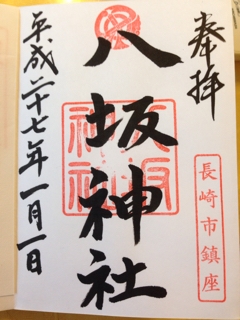 奉拝
長崎市鎮座
八坂神社
八坂神社
平成二十七年一月一日